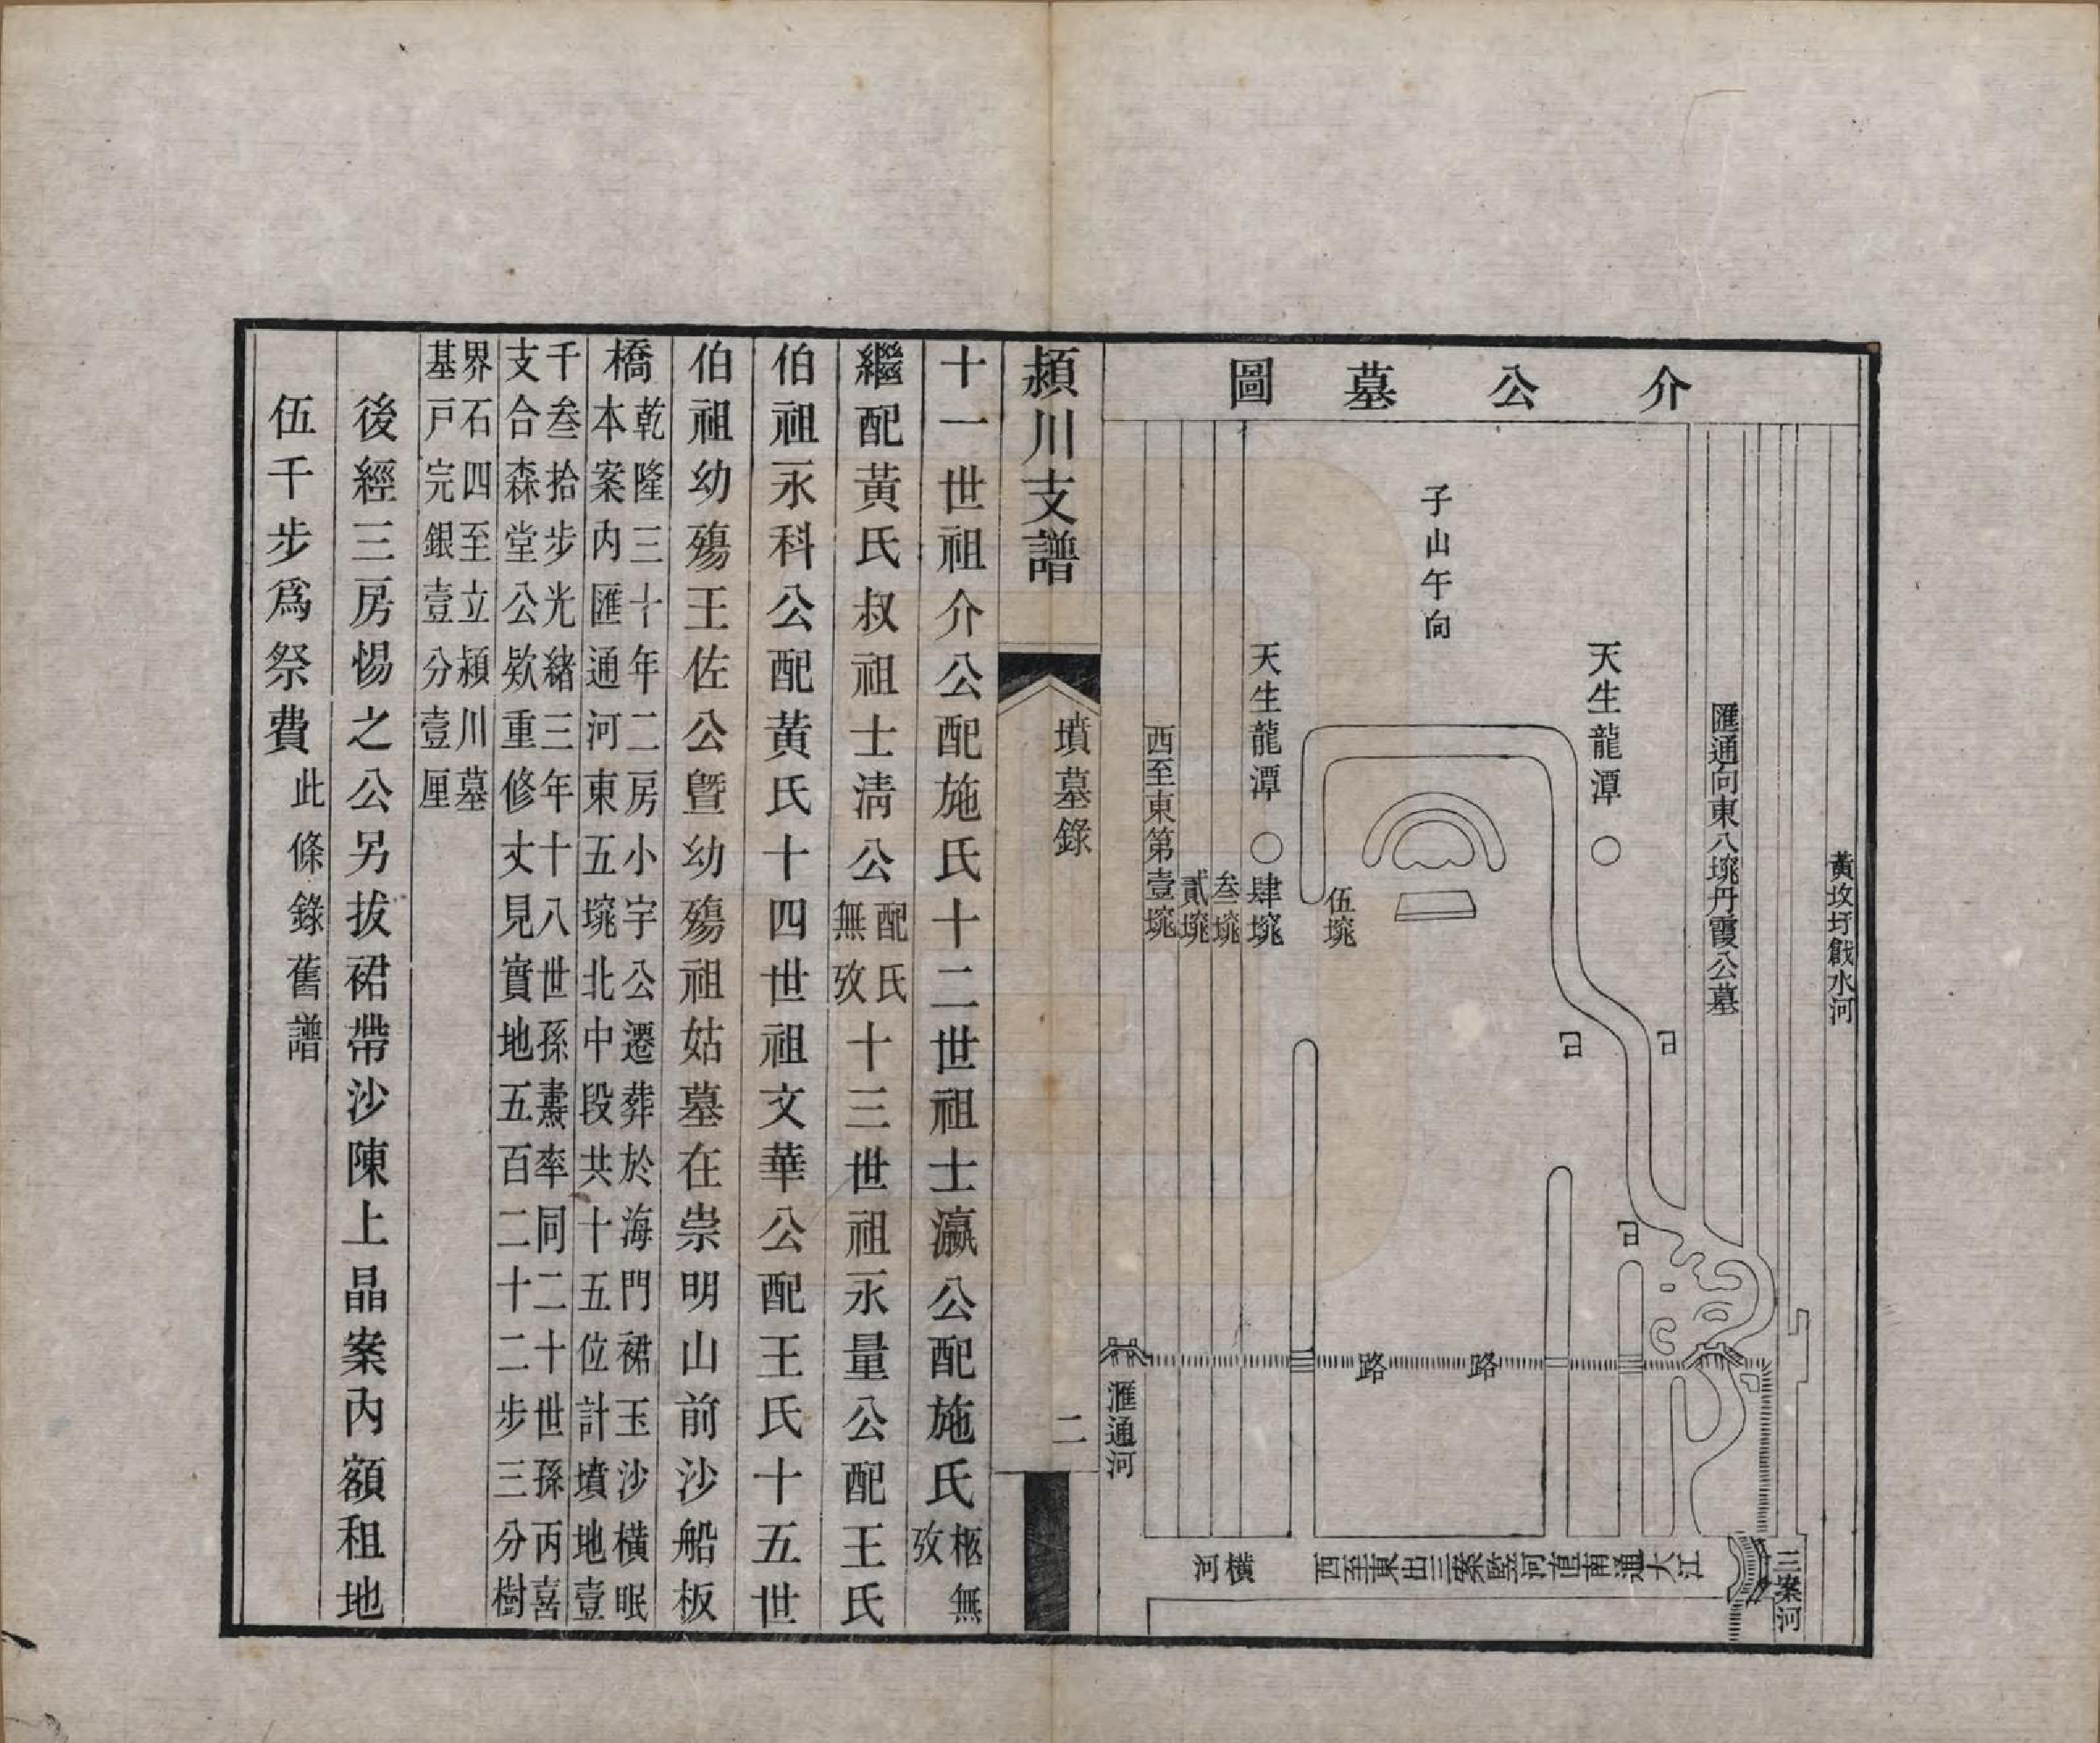 介公墓圖
黃坟圩戧水河
匯通向東八㙇丹霞公墓
天生龍潭
子山午向
天生龍潭
伍㙇
肆㙇
叁㙇
貳㙇
西至東第壹㙇
路
路
滙通河
三案河
江大通南值河竪案三出東至西
橫河
潁川支譜
墳墓錄
二
十一世祖介公配施氏十二世祖士瀛公配施氏柩無攷
繼配黃氏叔祖士淸公配氏無攷十三世祖永量公配王氏
伯祖永科公配黃氏十四世祖文華公配王氏十五世
伯祖幼殤王佐公曁幼殤祖姑墓在崇明山前沙船板
橋
乾隆三十年二房小宇公遷葬於海門裙玉沙橫眠
本案内匯通河東五㙇北中段共十五位計墳地壹
千叁拾步光緒三年十八世孫燾率同二十世孫丙喜
支合森堂公欵重修丈見實地五百二十二步三分樹
界石四至立潁川墓
基戸完銀壹分壹厘
後經三房惕之公另拔裙帶沙陳上晶案內額租地
伍千步爲祭費此條錄舊譜